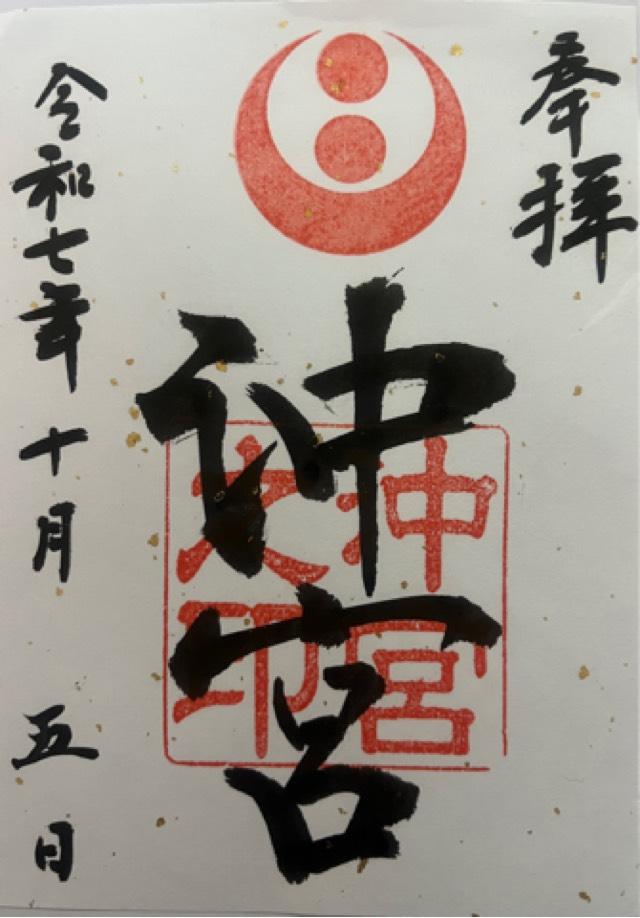 奉拝
沖宮
沖宮
之印
令和七年十月五日